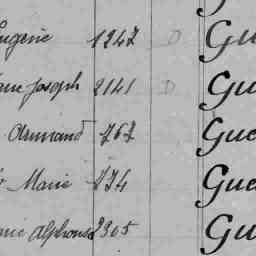 Eugenie 1247 D Gu
Joseph 2141 D Gu
Armand 767 Gue
Marie 774 Gue
Alphonse 2305 Gu